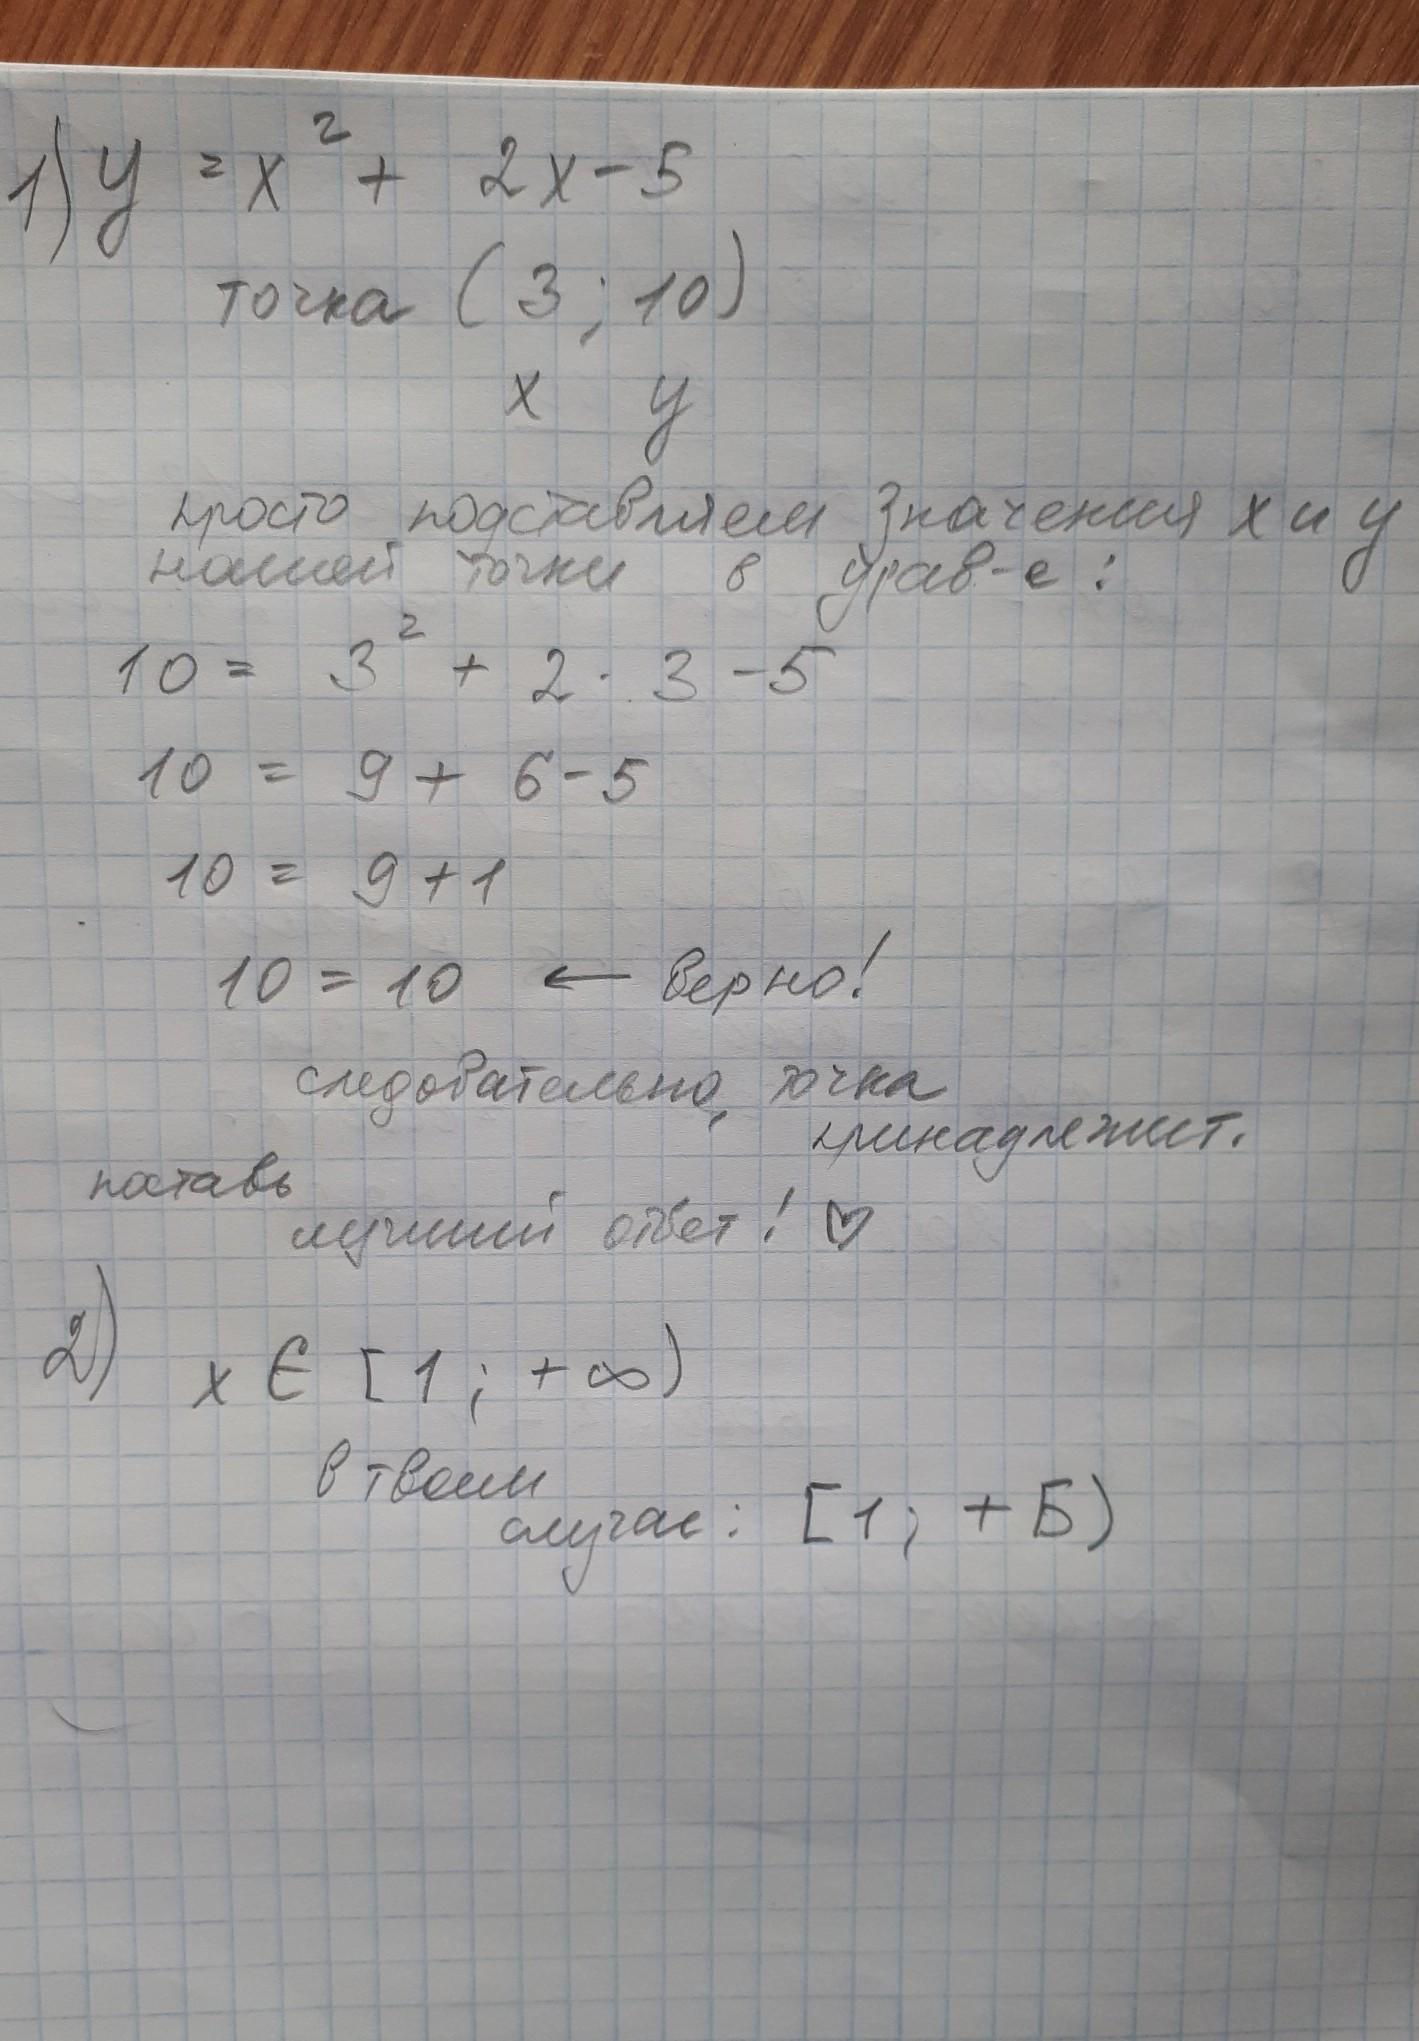 1) y = x² + 2x - 5
точка (3 ; 10)
x y
просто подставляем значения x и y
нашей точки в урав-е :
10 = 3² + 2 · 3 - 5
10 = 9 + 6 - 5
10 = 9 + 1
10 = 10 ← верно!
следовательно, точка
принадлежит.
поставь
лучший ответ! ♡
2) x ∈ [1 ; +∞)
в твоем
случае : [1 ; + Б)